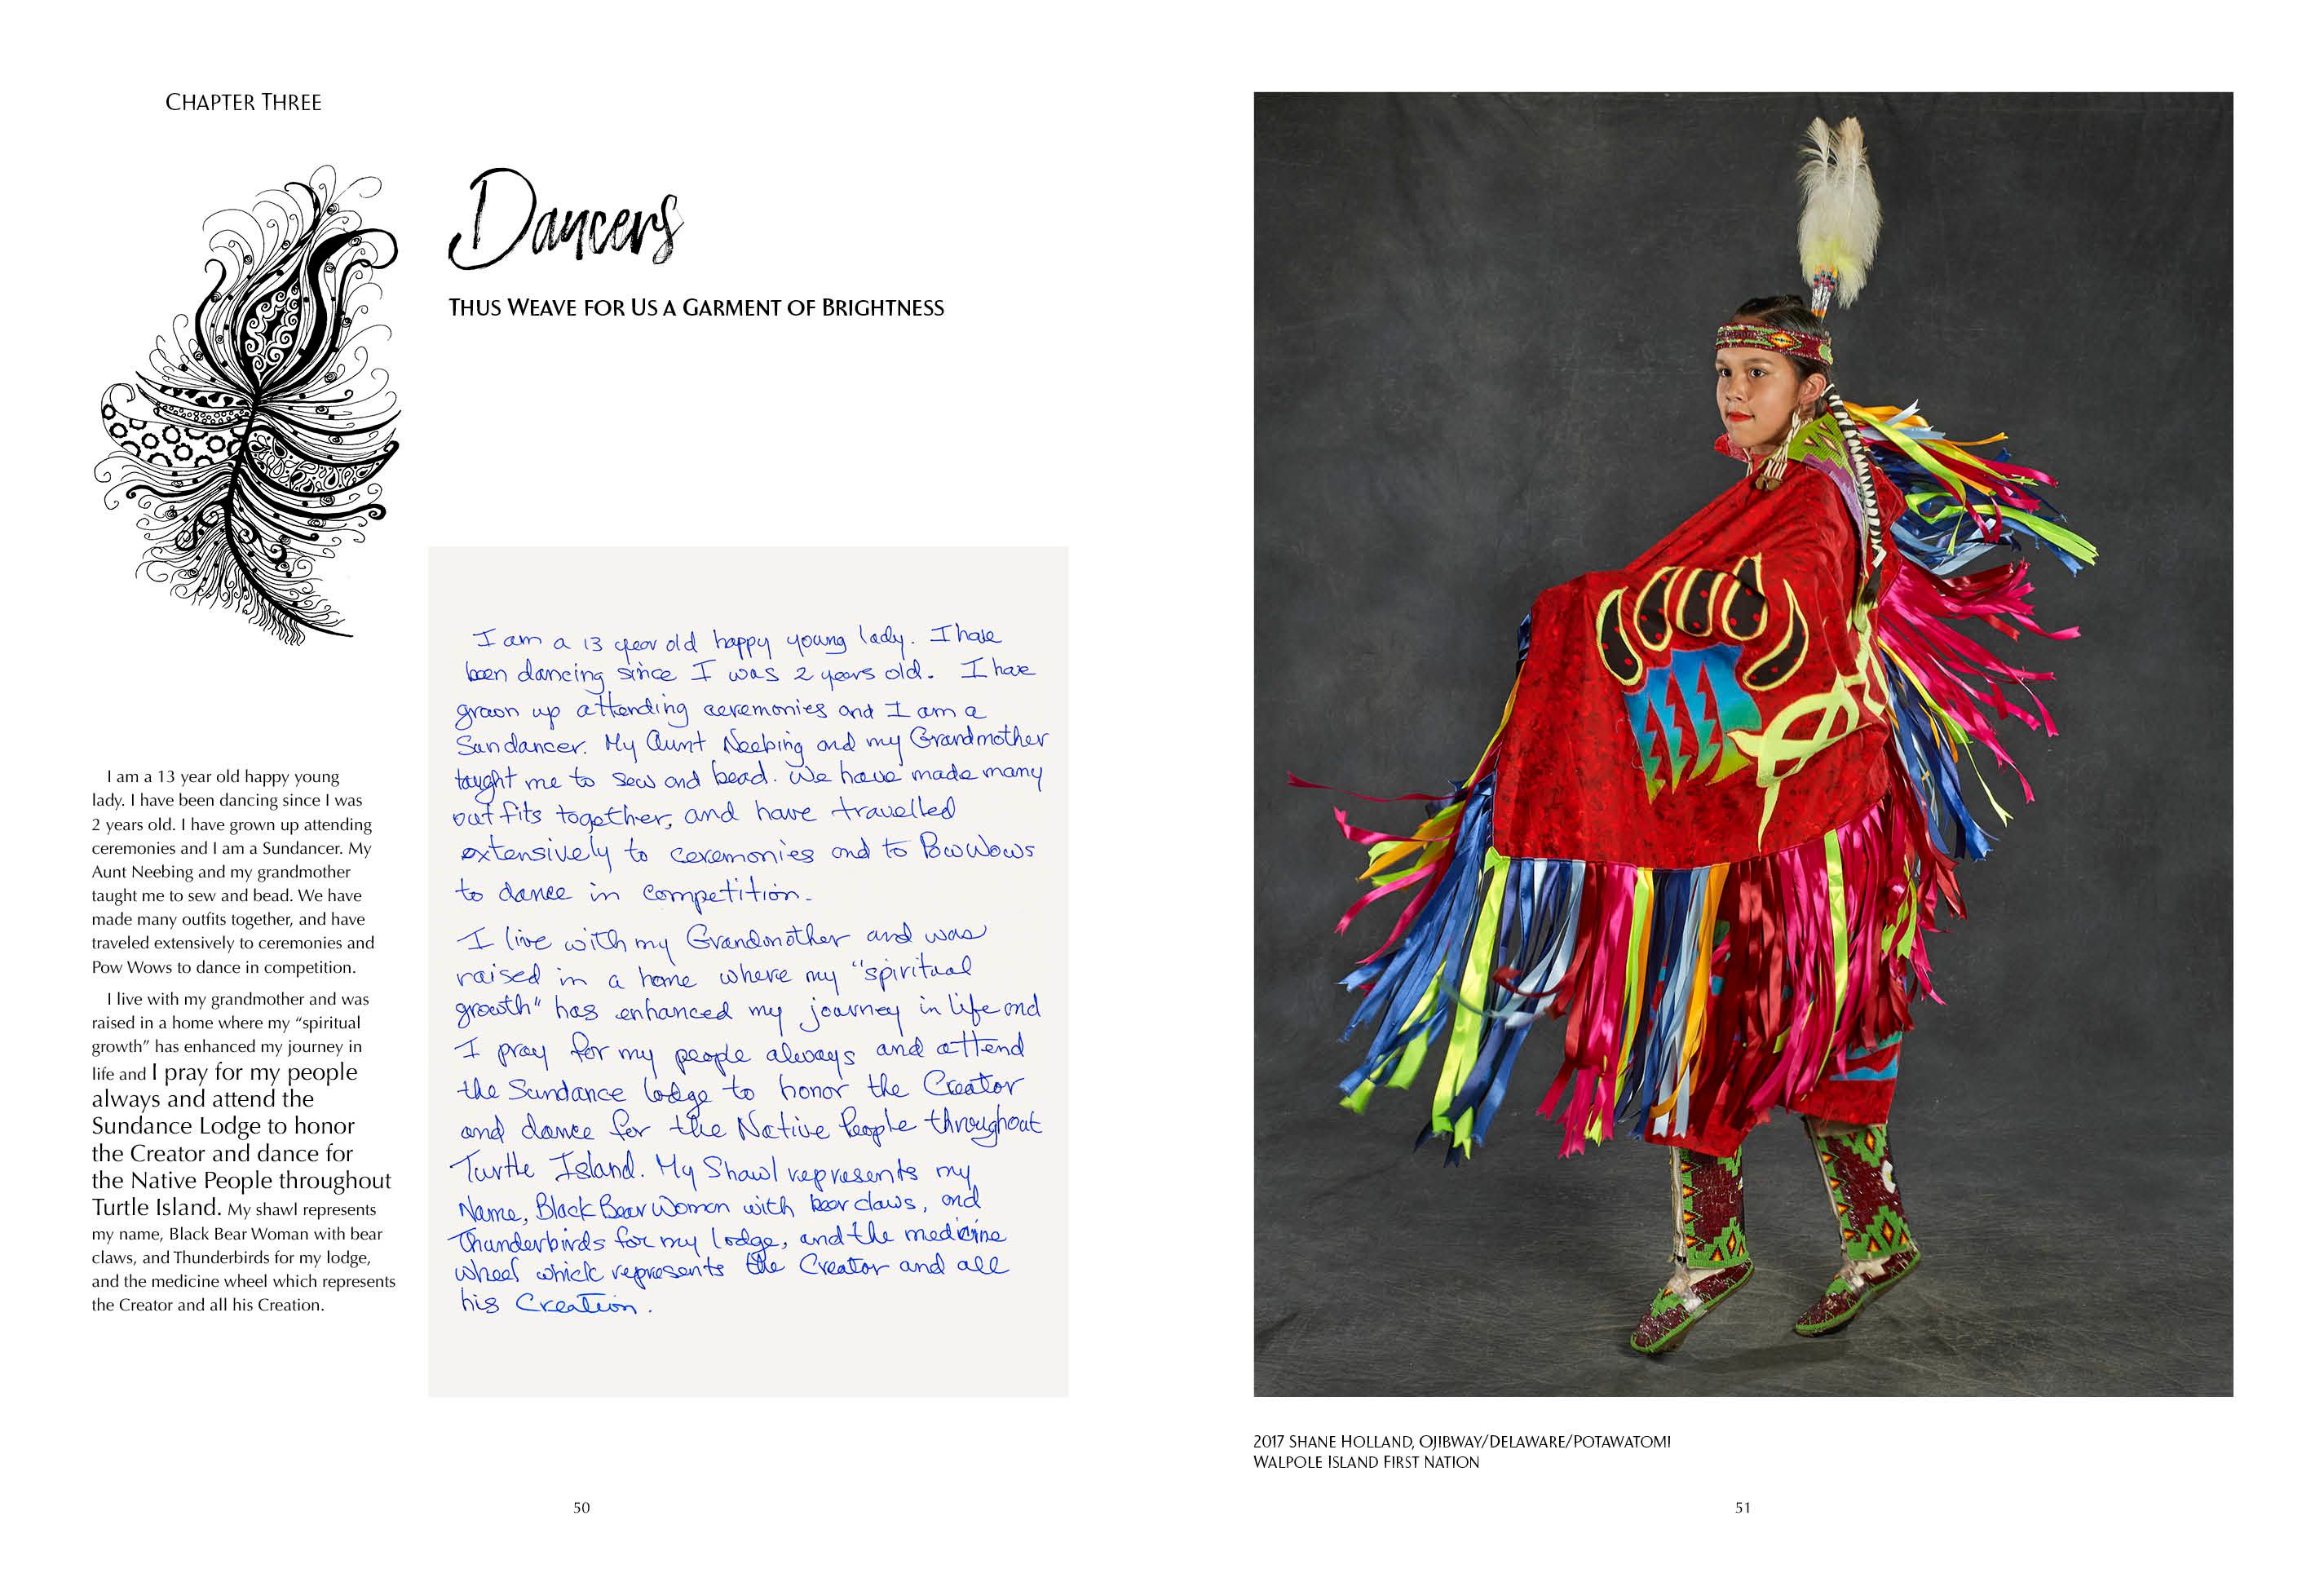 CHAPTER THREE
Dancers
THUS WEAVE FOR US A GARMENT OF BRIGHTNESS
I am a 13 year old happy young
lady. I have been dancing since I was
2 years old. I have grown up attending
ceremonies and I am a Sundancer. My
Aunt Neebing and my grandmother
taught me to sew and bead. We have
made many outfits together, and have
traveled extensively to ceremonies and
Pow Wows to dance in competition.
I live with my grandmother and was
raised in a home where my “spiritual
growth” has enhanced my journey in
life and I pray for my people
always and attend the
Sundance Lodge to honor
the Creator and dance for
the Native People throughout
Turtle Island. My shawl represents
my name, Black Bear Woman with bear
claws, and Thunderbirds for my lodge,
and the medicine wheel which represents
the Creator and all his Creation.
I am a 13 year old happy young lady. I have
been dancing since I was 2 years old. I have
grown up attending ceremonies and I am a
Sundancer. My Aunt Neebing and my Grandmother
taught me to sew and bead. We have made many
outfits together, and have travelled
extensively to ceremonies and to PowWows
to dance in competition.
I live with my Grandmother and was
raised in a home where my “spiritual
growth” has enhanced my journey in life and
I pray for my people always and attend
the Sundance lodge to honor the Creator
and dance for the Native People throughout
Turtle Island. My Shawl represents my
Name, Black Bear Woman with bear claws, and
Thunderbirds for my lodge, and the medicine
wheel which represents the Creator and all
his Creation.
50
2017 SHANE HOLLAND, OJIBWAY/DELAWARE/POTAWATOMI
WALPOLE ISLAND FIRST NATION
51